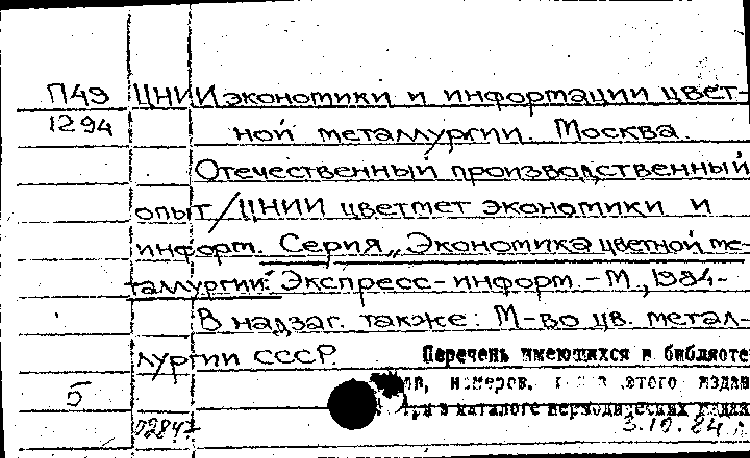 П49 ЦНИИ экономики и информации цвет-
1294 ной металлургии. Москва.
Отечественный производственный
опыт / ЦНИИ цветмет экономики и
информ. Серия „Экономика цветной ме-
таллургии: Экспресс-информ. - М., 1984-
В надзаг. также: М-во цв. метал-
лургии СССР. Перечень имеющихся в библиоте
номеров, этого издан
Б в каталоге периодических издан
02847 3.10.84